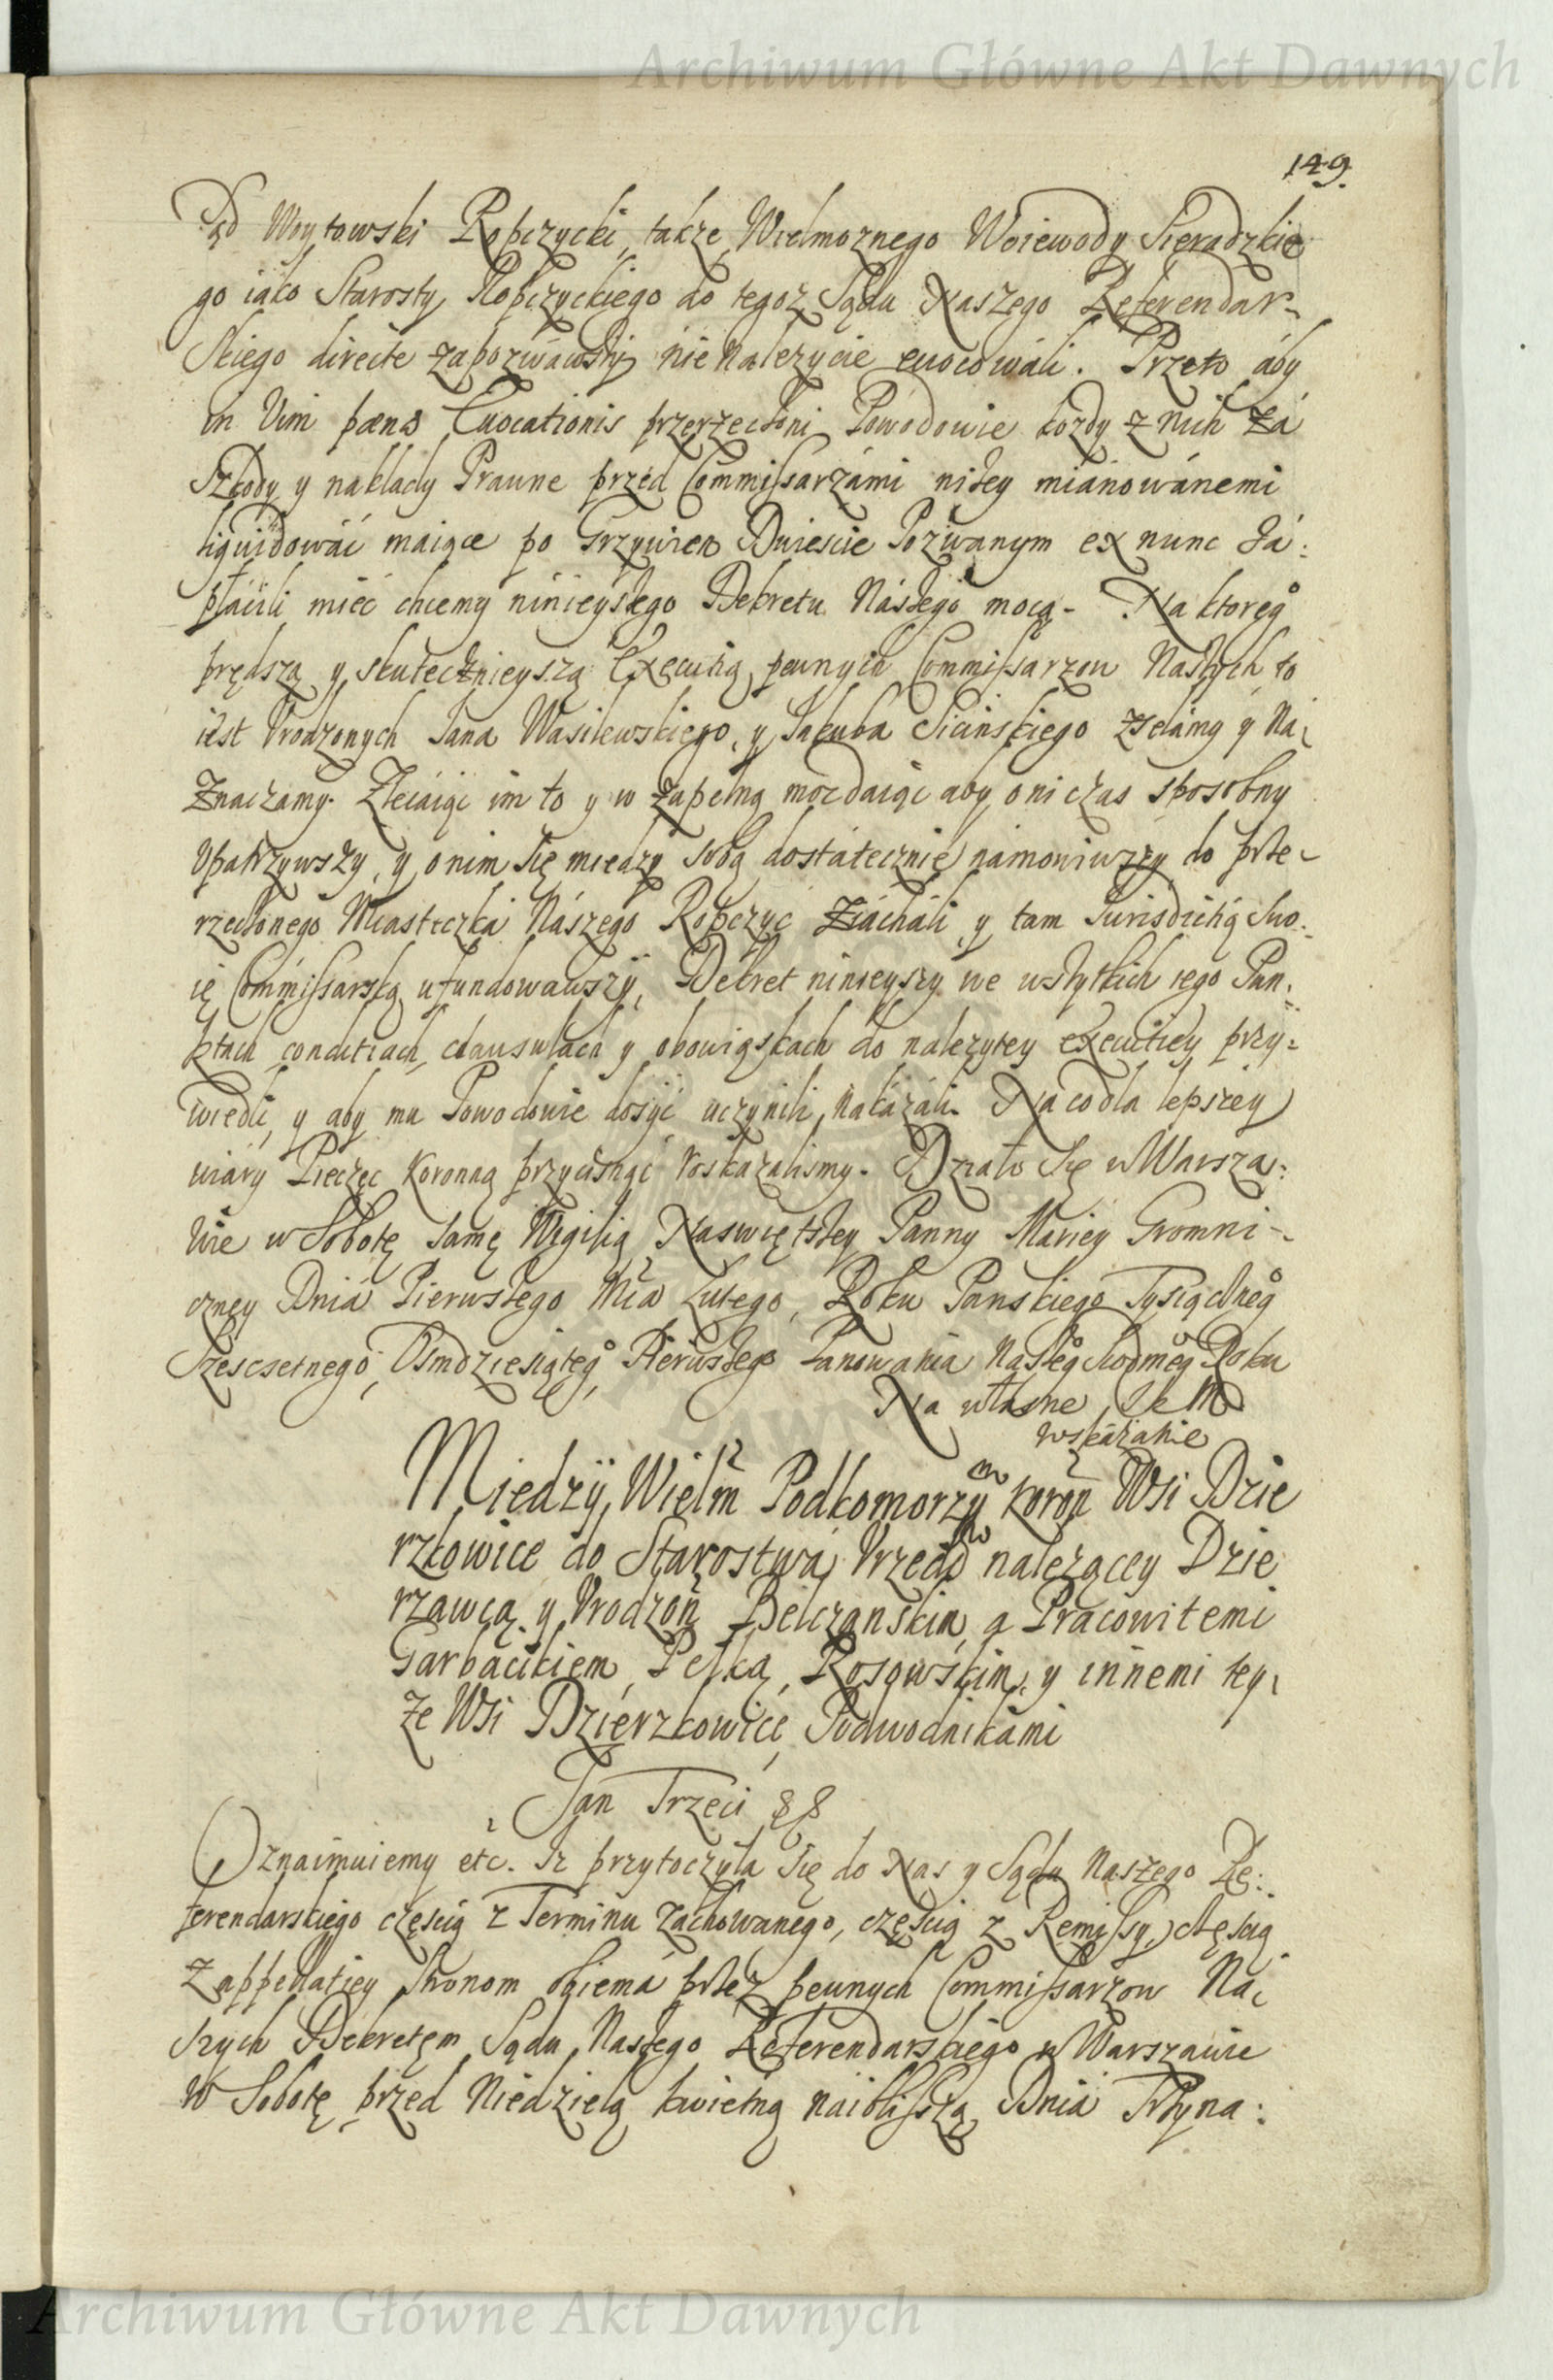 Archiwum Główne Akt Dawnych
149.
Sąd Woytowski Ropczycki, także Wielmoznego Woiewody Sieradzkie
go iako Starosty Ropczyckiego do tegoz Sądu Naszego Referendar-
skiego directe zapozwawszy nienalezycie ewocowali. Przeto aby
in Vim pænæ Evocationis przerzeczoni Powodowie kozdy z nich za
Szkody y naklady Prawne przed Commissarzami niżey mianowanemi
liquidować maiące po Grzywien Dwiescie Pozwanym ex nunc Za:
płacili mieć chcemy ninieyszego Dekretu Naszego mocą - Na ktoreg°
prędszą y skutecznieyszą Executią pewnych Commissarzow Naszych to
iest Vrodzonych Jana Wasilewskiego, y Jakuba Sicinskiego zselamy y Na-
Znaczamy. Zlecaiąc im to y w zupełną moc daiąc aby oni czas sposobny
Vpatrzywszy, y onim się miedzy sobą dostatecznie namowiwszy do prze-
rzeczonego Miasteczka Naszego Ropczyc ziachali y tam Jurisdictią Swo:
ię Commissarską ufundowawszy, Dekret ninieyszy we wszytkich iego Pun:
ktach conditiach, clausulach y obowiąskach do nalezytey executiey przy:
wiedli, y aby mu Powodowie dosyć uczynili, nakazali. Na co dla lepszey
wiary Pieczęc Koronną przycisnąć roskazalismy. Działo Się w Warsza:
wie w Sobotę samę Wigilią Naswiętszey Panny Mariey Gromni-
czney Dnia Pierwszego Mca Lutego, Roku Panskiego Tysiącżneg°
Szescsetnego, Osmdziesiąteg° Pierwszego Panowania Naszeg° Siodmeg° Roku
Na własne JeM
wskazanie
Miedzy Wielm Podkomorzym Koron Wsi Dzie
rzkowice do Starostwa Vrzed nalezącey Dzie
rzawcą y Vrodzon Belczanskim a Pracowitemi
Garbacikiem, Peską, Rosowskim y innemi tey-
że Wsi Dzierzkowice Podwodnikami
Jan Trzeci
Oznaimuiemy etc. Iz przytoczyla się do Nas y Sądu Naszego Re:
ferendarskiego częscią z Terminu zachowanego, częscią z Remissy, częscią
z appellatiey stronom obiema przez pewnych Commissarzow Na-
szych Dekretem Sądu Naszego Referendarskiego w Warszawie
w Sobotę przed Niedzielą kwietną naiblisszą Dnia Trzyna:
Archiwum Główne Akt Dawnych